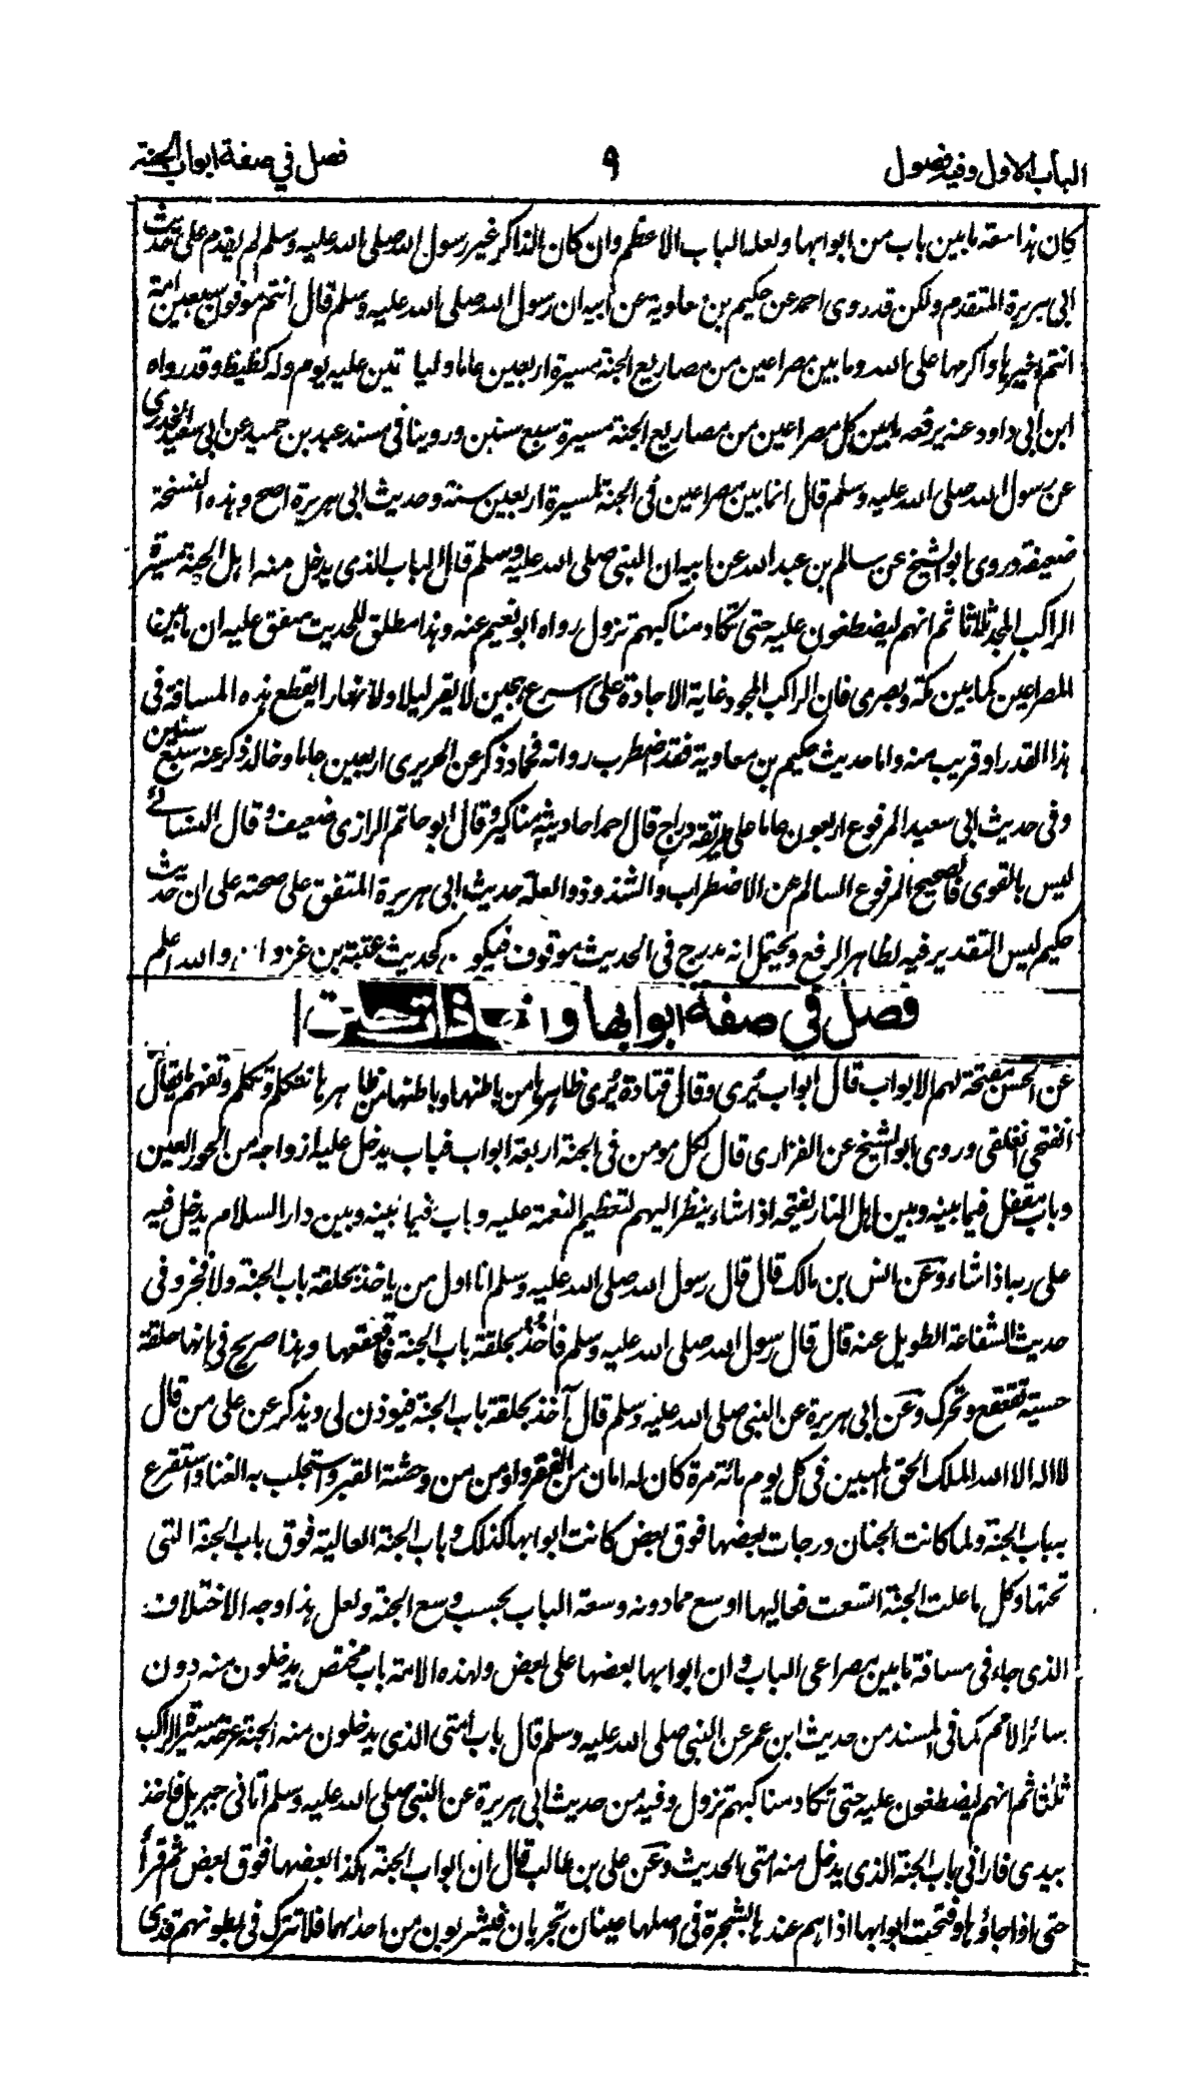 الباب الاول وفيه فصول
٩
فصل في صفة ابواب الجنة
كان هذا سعة ما بين باب من ابوابها ولعله الباب الاعظم وان كان الذاكر غير رسول الله صلى الله عليه وسلم لم يقدم على حديث
ابى هريرة المتقدم ولكن قد روى احمد عن حكيم بن معاوية عن ابيه ان رسول الله صلى الله عليه وسلم قال انتم موفون سبعين امة
انتم اخيرها واكرمها على الله وما بين مصراعين من مصاريع الجنة مسيرة اربعين عاما وليا تين عليه يوم وله كظيظ وقد رواه
ابن ابى داود عنه يرفعه ما بين كل مصراعين من مصاريع الجنة مسيرة سبع سنين وروينا فى مسند عبد بن حميد عن ابى سعيد الخدرى
عن رسول الله صلى الله عليه وسلم قال ان ما بين مصراعين فى الجنة لمسيرة اربعين سنة وحديث ابى هريرة اصح وهذه النسخة
ضعيفة وروى ابو الشيخ عن سالم بن عبد الله عن ابيه ان النبى صلى الله عليه وسلم قال الباب الذى يدخل منه اهل الجنة مسيرة
الراكب المجد ثلاثا ثم انهم ليضطغون عليه حتى تكاد مناكبهم تزول رواه ابو نعيم عنه وهذا مطلق للحديث متفق عليه ان ما بين
المصراعين كما بين مكة وبصرى فان الراكب المجود غاية الاجادة على اسرع هجين لا يقر ليلا ولا نهارا يقطع هذه المسافة فى
هذا القدر او قريب منه واما حديث حكيم بن معاوية فقد اضطرب رواته فحماد ذكر عن الجريرى اربعين عاما وخالد ذكر عنه سبع سنين
وفى حديث ابى سعيد المرفوع اربعون عاما على طريقة دراج قال احمد احاديثه مناكير وقال ابو حاتم الرازى ضعيف وقال النسائے
ليس بالقوى فالصحيح المرفوع السالم عن الاضطراب والشذوذ والعلة حديث ابى هريرة المتفق على صحته على ان حديث
حكيم ليس التقدير فيه لظاهر الرفع ويحتمل انه مدرج فى الحديث موقوف فيكون كحديث عتبة بن غزوان والله اعلم
فصل فى صفة ابوابها و
عن الحسن مفتحة لهم الابواب قال ابواب يُرى وقال قتادة يُرى ظاهرها من باطنها وباطنها من ظاهرها تتكلم وتكلم وتفهم ما يقال
انفتحى انغلقى وروى ابو الشيخ عن الفزارى قال لكل مومن فى الجنة اربعة ابواب فباب يدخل عليه ازواجه من الحور العين
وباب مقفل فيما بينه وبين اهل النار يفتحه اذا شاء ينظر اليهم لتعظيم النعمة عليه وباب فيما بينه وبين دار السلام يدخل فيه
على ربه اذا شاء وعن انس بن مالك قال قال رسول الله صلى الله عليه وسلم انا اول من ياخذ بحلقة باب الجنة ولا فخر وفى
حديث الشفاعة الطويل عنه قال قال رسول الله صلى الله عليه وسلم فآخذ بحلقة باب الجنة فاقعقعها وهذا صريح فى انها حلقة
حسية تقعقع وتحرك وعن ابى هريرة عن النبى صلى الله عليه وسلم قال آخذ بحلقة باب الجنة فيوذن لى ويذكر عن على من قال
لا اله الا الله الملك الحق المبين فى كل يوم مائة مرة كان له امان من الفقر واومن من وحشة القبر واستجلب به الغنا واستقرع
به باب الجنة ولما كانت الجنان درجات بعضها فوق بعض كانت ابوابها كذلك وباب الجنة العالية فوق باب الجنة التى
تحتها وكل ما علت الجنة اتسعت فعاليها اوسع مما دونه وسعة الباب بحسب وسع الجنة ولعل هذا وجه الاختلاف
الذى جاء فى مسافة ما بين مصراعى الباب وان ابوابها بعضها على بعض ولهذه الامة باب مختص يدخلون منه دون
سائر الامم كما فى المسند من حديث ابن عمر عن النبى صلى الله عليه وسلم قال باب امتى الذى يدخلون منه الجنة عرضه مسيرة الراكب
ثلثا ثم انهم ليضطغون عليه حتى تكاد مناكبهم تزول وفيه من حديث ابى هريرة عن النبى صلى الله عليه وسلم اتانى جبريل فاخذ
بيدى فارانى باب الجنة الذى يدخل منه امتى الحديث وعن على بن طالب قال ان ابواب الجنة هكذا بعضها فوق بعض ثم قرأ
حتى اذا جاؤها وفتحت ابوابها اذا هم عندها بشجرة فى اصلها عينان تجريان فيشربون من احداهما فلا تترك فى بطونهم قذى